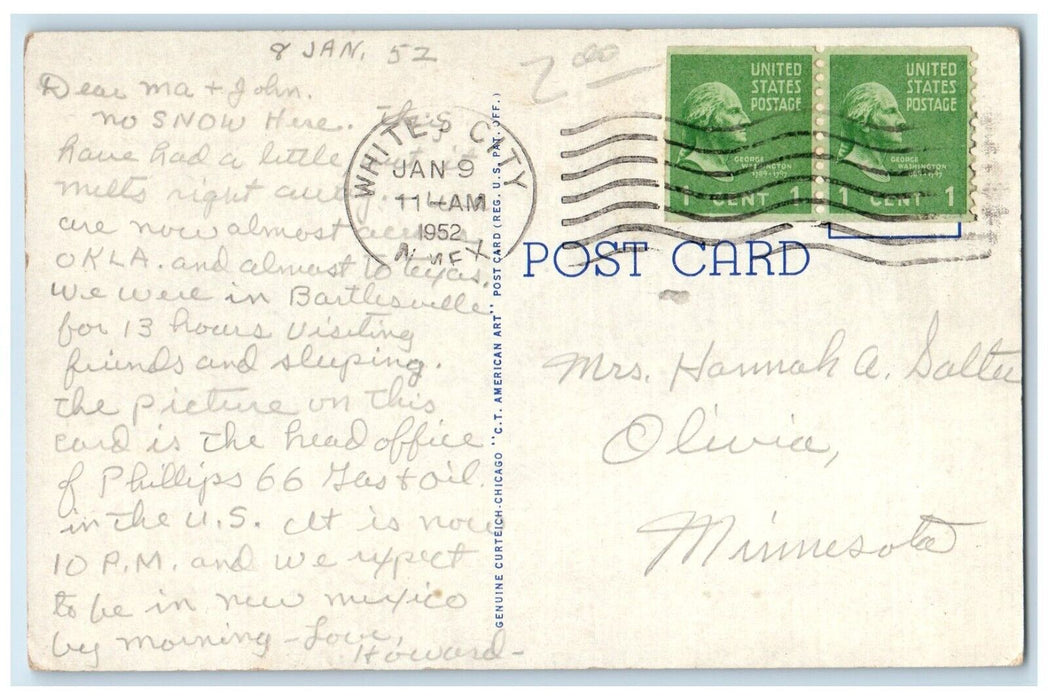 8 JAN. 52
Dear Ma + John.
No SNOW Here. They
have had a little but it
melts right away. We
are now almost across
OKLA. and almost to Texas.
We were in Bartlesville
for 13 hours visiting
friends and sleeping.
The picture on this
card is the head office
of Phillips 66 Gas + oil.
in the U.S. It is now
10 P.M. and we expect
to be in New Mexico
by morning - Love,
Howard -
GENUINE CURTEICH-CHICAGO "C.T. AMERICAN ART" POST CARD (REG. U.S. PAT. OFF.)
2.00
WHITE'S CITY
JAN 9
11 - AM
1952
N. MEX
UNITED
STATES
POSTAGE
GEORGE
WASHINGTON
1789-1797
1 CENT 1
UNITED
STATES
POSTAGE
GEORGE
WASHINGTON
1789-1797
1 CENT 1
POST CARD
Mrs. Hannah A. Salter
Olivia,
Minnesota